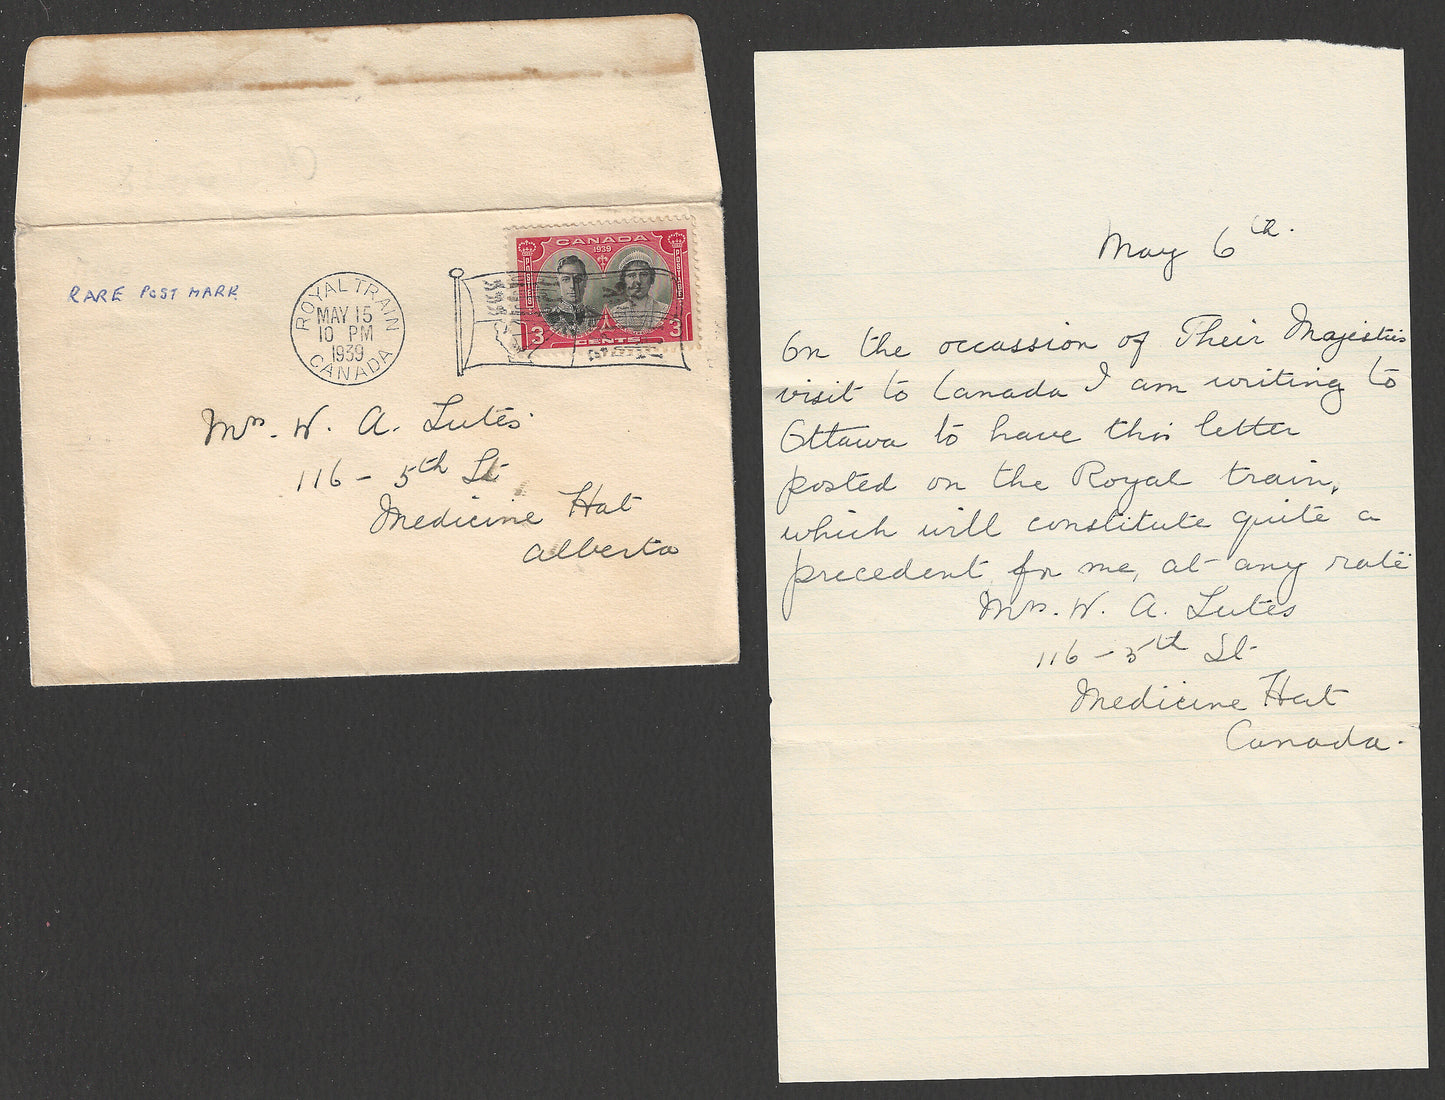 RARE POST MARK
ROYAL TRAIN
MAY 15
10 PM
1939
CANADA
CANADA
1939
POSTES
POSTAGE
3
3
CENTS
Mrs. W. A. Lutes
116 - 5th St
Medicine Hat
Alberta
May 6th.
On the occassion of Their Majesties
visit to Canada I am writing to
Ottawa to have this letter
posted on the Royal train,
which will constitute quite a
precedent, for me, at any rate
Mrs. W. A. Lutes
116 - 5th St
Medicine Hat
Canada.